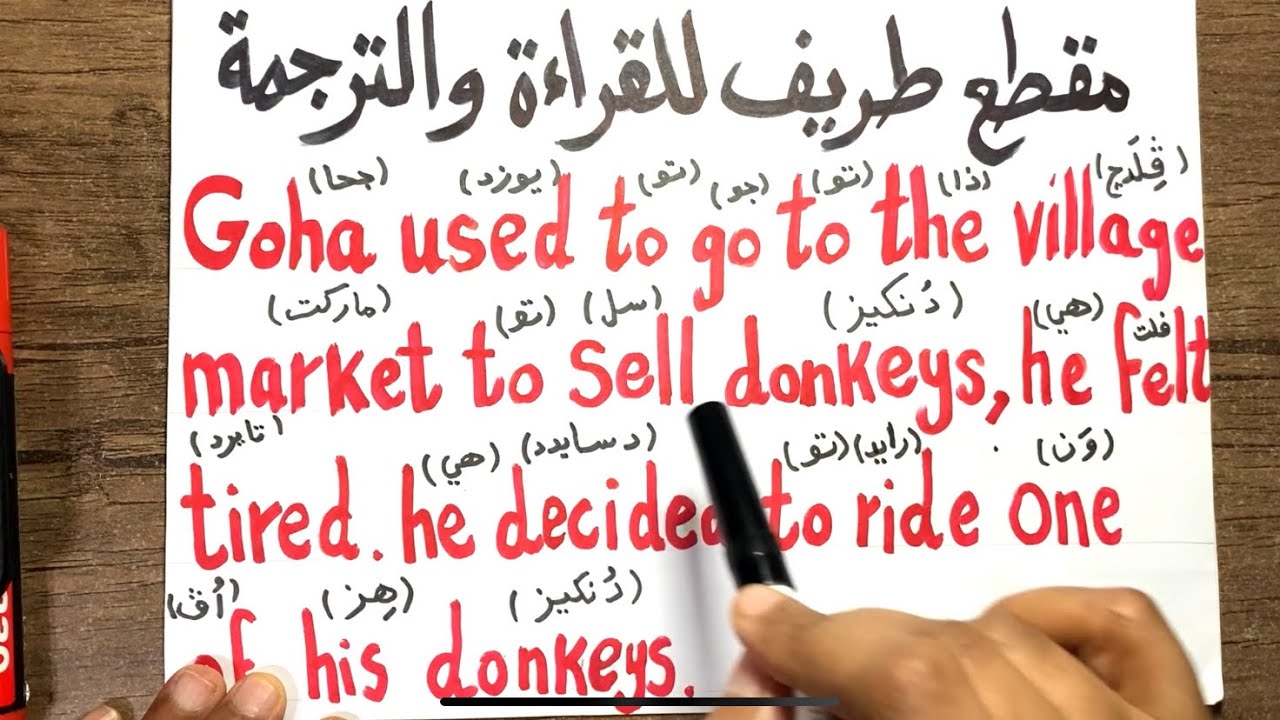 مقطع طريف للقراءة والترجمة
(جحا) (يوزد) (تو) (جو) (تو) (ذا) (ڤِلَدج)
Goha used to go to the village
(ماركت) (تو) (سل) (دُنكيز) (هي) فلت
market to sell donkeys, he felt
(تايرد) (هي) (دسايدد) (تو) (رايد) (وَن)
tired. he decided to ride one
(أُڤ) (هِز) (دُنكيز)
of his donkeys.